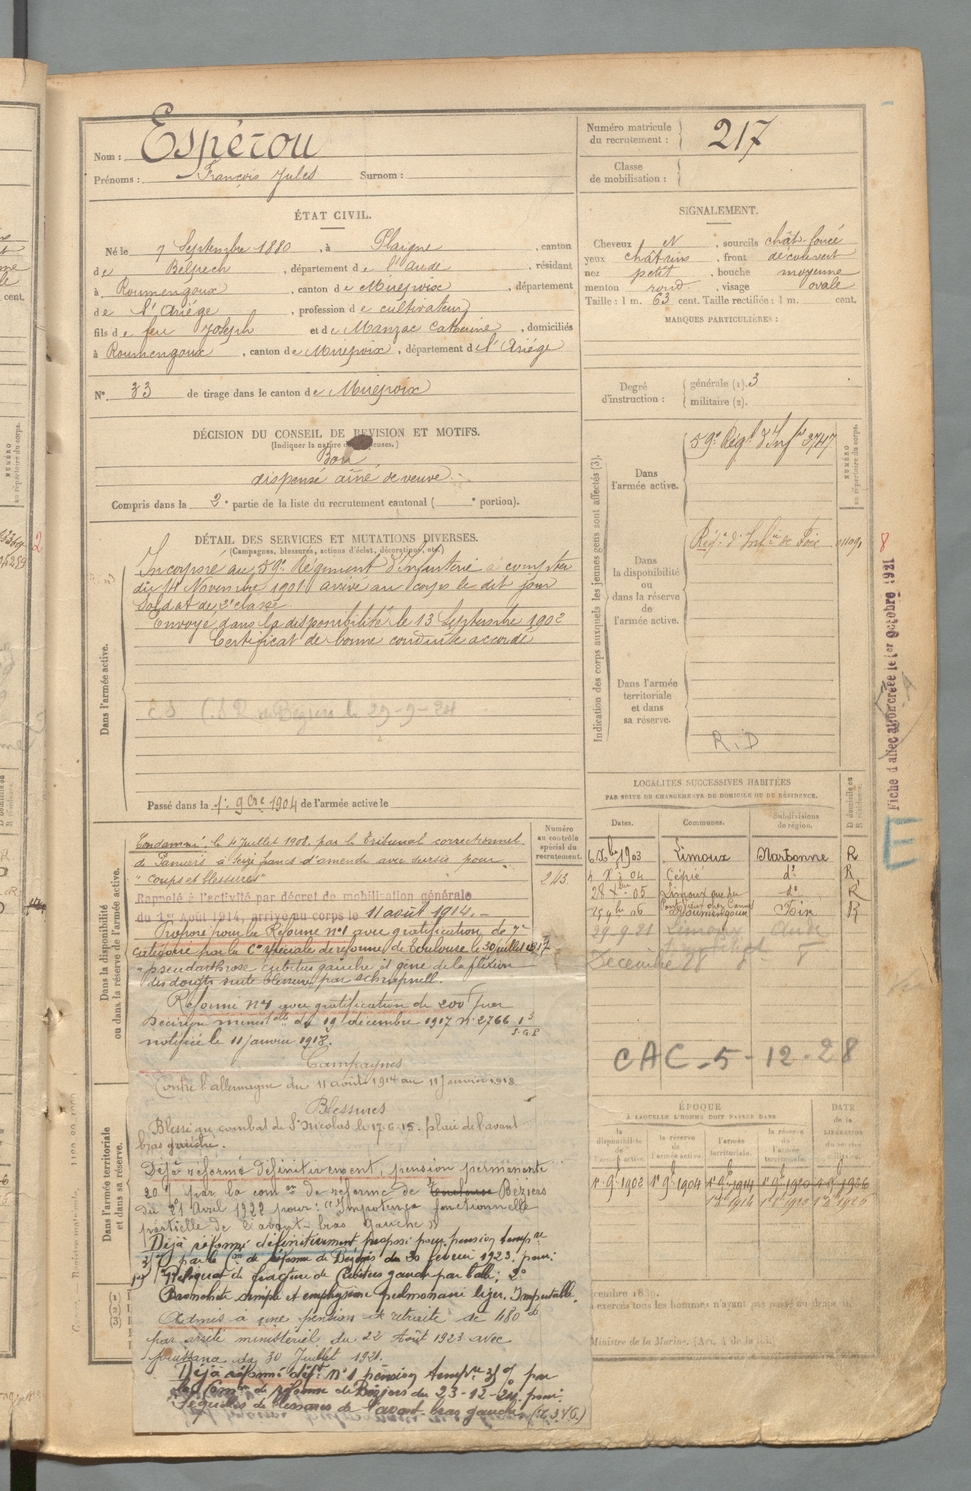 Nom : Espérou
Prénoms : François Jules Surnom :
Numéro matricule du recrutement : 217
Classe de mobilisation :
ÉTAT CIVIL.
Né le 7 Septembre 1880, à Plaigne, canton
de Belpech, département de l'Aude, résidant
à Roumengoux, canton de Mirepoix, département
de l'Ariége, profession de cultivateur
fils de feu Joseph et de Manzac Catherine, domiciliés
à Roumengoux, canton de Mirepoix, département de l'Ariége
N° 33 de tirage dans le canton de Mirepoix
SIGNALEMENT.
Cheveux N, sourcils chât. foncé
yeux châtains, front découvert
nez petit, bouche moyenne
menton rond, visage ovale
Taille : 1 m. 63 cent. Taille rectifiée : 1 m. cent.
MARQUES PARTICULIÈRES :
Degré d'instruction : générale (1). 3
militaire (2).
DÉCISION DU CONSEIL DE REVISION ET MOTIFS.
Bon
dispensé aîné de veuve
Compris dans la 2e partie de la liste du recrutement cantonal ( e portion).
DÉTAIL DES SERVICES ET MUTATIONS DIVERSES.
(Campagnes, blessures, actions d'éclat, décorations, etc.)
Dans l'armée active.
Incorporé au 59e Régiment d'Infanterie à compter
du 14 Novembre 1901 arrivé au corps le dit jour
Soldat de 2e classe
Envoyé dans la disponibilité le 13 Septembre 1902
Certificat de bonne conduite accordé
Béziers le 29-9-21
Passé dans la 1er 9bre 1904 de l'armée active le
Indication des corps auxquels les jeunes gens sont affectés (3).
NUMÉRO au répertoire du corps.
Dans l'armée active.
59e Régt d'Inf 3747
Dans la disponibilité ou dans la réserve de l'armée active.
Régt d'Infie de Foix
Dans l'armée territoriale et dans sa réserve.
R.D
Dans la disponibilité ou dans la réserve de l'armée active.
Numéro au contrôle spécial du recrutement.
243
Condamné, le 4 Juillet 1908, par le Tribunal correctionnel
de Pamiers à seize francs d'amende avec sursis pour
"coups et blessures"
Rappelé à l'activité par décret de mobilisation générale
du 1er Août 1914, arrivé au corps le 11 août 1914.
Proposé pour la Réforme n°1 avec gratification de 7e
catégorie par la Cion spéciale de réforme de Toulouse le 30 juillet 1917
"pseudarthrose cubitus gauche et gêne de la flexion
des doigts suite blessure par schrapnell.
Réformé N°1 avec gratification de 200f par
Décision ministlle du 19 décembre 1917 n° 2766 1/3 S.G.P
notifiée le 11 janvier 1918.
Campagnes
Contre l'allemagne du 11 août 1914 au 11 janvier 1918
Blessures
Blessé au combat de St Nicolas le 17-6-15. plaie de l'avant
bras gauche.
Dans l'armée territoriale et dans sa réserve.
Déjà réformé définitivement, pension permanente
20 % par la comon de réforme de Toulouse Béziers
du 21 Avril 1922 pour : "Impotence fonctionnelle
partielle de l'avant-bras gauche"
Déjà réformé définitivement proposé pour pension tempre
par la Con de réforme de Béziers du 20 février 1923. pour :
1° Reliquat de fracture du Cubitus gauche par balle ; 2°
Bronchite simple et emphysème pulmonaire léger. Imputable.
Admis à une pension de retraite de 480f
par arrêté ministériel du 22 Août 1923 avec
jouissance du 30 Juillet 1921.
Déjà réformé déft N°1 pension tempre 35 % par
la Comon de réforme de Béziers du 23-12-24 pour :
Séquelles de blessures de l'avant bras gauche
LOCALITÉS SUCCESSIVES HABITÉES
PAR SUITE DE CHANGEMENTS DE DOMICILE OU DE RÉSIDENCE.
Dates. Communes. Subdivisions de région. D domicile ou R résidence.
6 Xbre 1903 Limoux Narbonne R
4 X 04 Cépie d° R
28 Xbre 05 Limoux d° R
25 9bre 06 Roumengoux Foix R
29-9-21 Limoux Aude
Décembre 28
CAC-5-12-28
ÉPOQUE À LAQUELLE L'HOMME DOIT PASSER DANS
DATE de la LIBÉRATION du service militaire.
la disponibilité de l'armée active. la réserve de l'armée active. l'armée territoriale. la réserve de l'armée territoriale.
1er 9bre 1902 1er 9bre 1904 1er 9bre 1914 1er 9bre 1920 1926
Ministre de la Marine. (Art. 4 de la loi)
Fiche d'allocation créée le 1er Octobre 1921
E